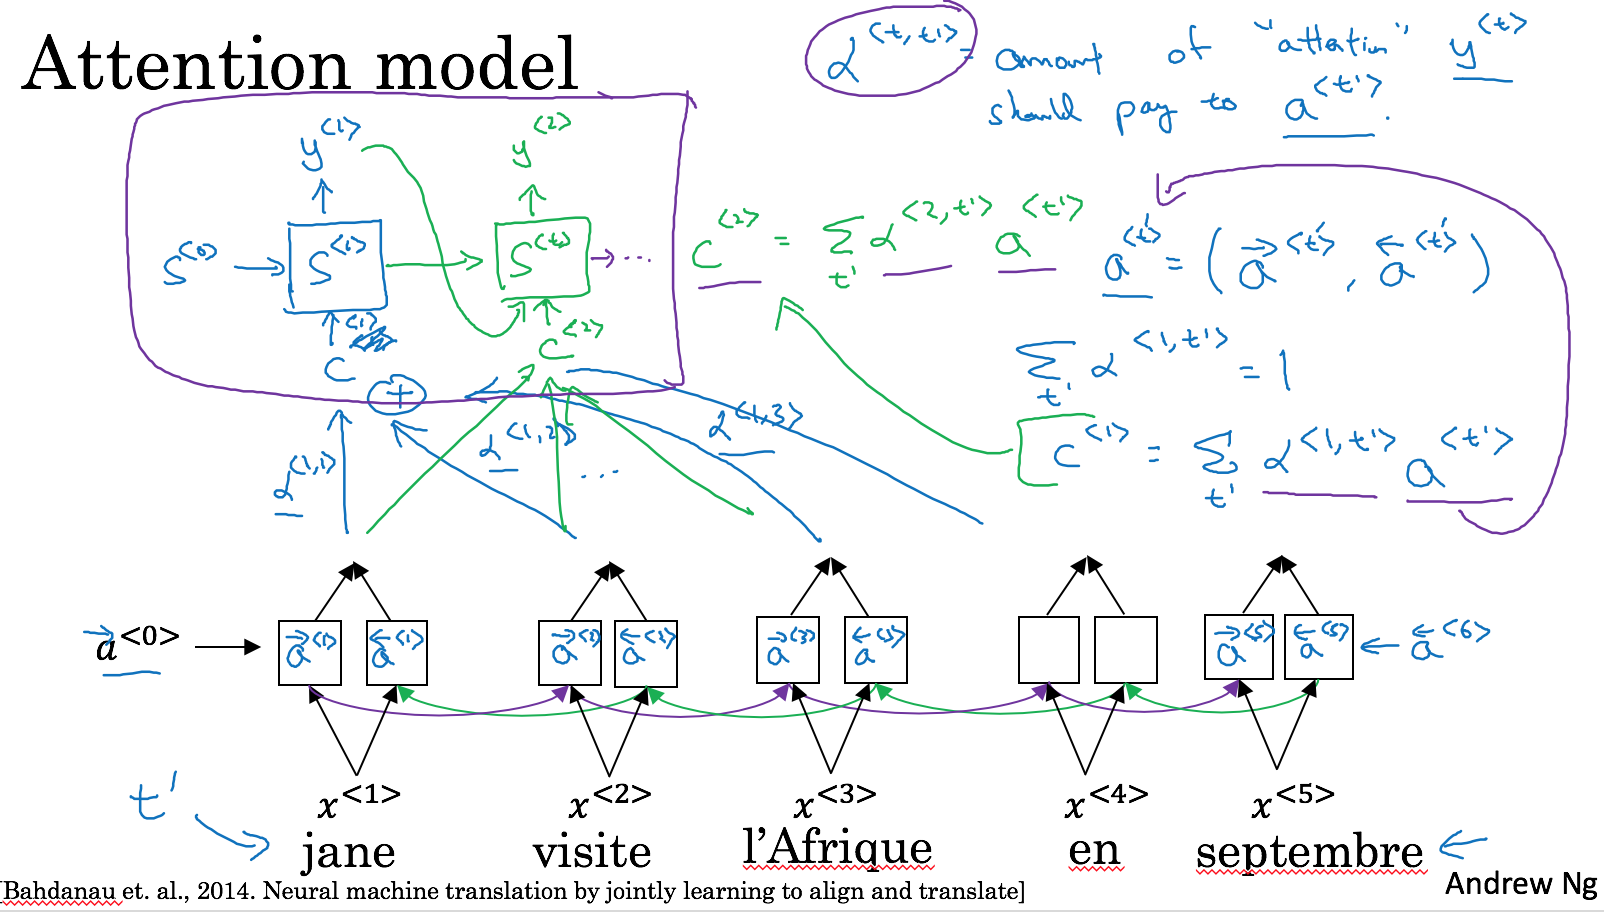 Attention model
α<t,t'> = amount of "attention" y<t>
should pay to a<t'>.
y<1>
y<2>
s<0> → S<1>
S<t> → ...
c<1>
c<2>
c<2> = Σt' α<2,t'> a<t'>
a<t'> = (a→<t'>, a←<t'>)
Σt' α<1,t'> = 1
c<1> = Σt' α<1,t'> a<t'>
+
α<1,1>
α<1,2>
...
α<1,3>
a→<0>
a→<1> a←<1>
a→<2> a←<2>
a→<3> a←<3>
a→<5> a←<5>
← a←<6>
t'
x<1> x<2> x<3> x<4> x<5>
jane visite l’Afrique en septembre
[Bahdanau et. al., 2014. Neural machine translation by jointly learning to align and translate]
Andrew Ng